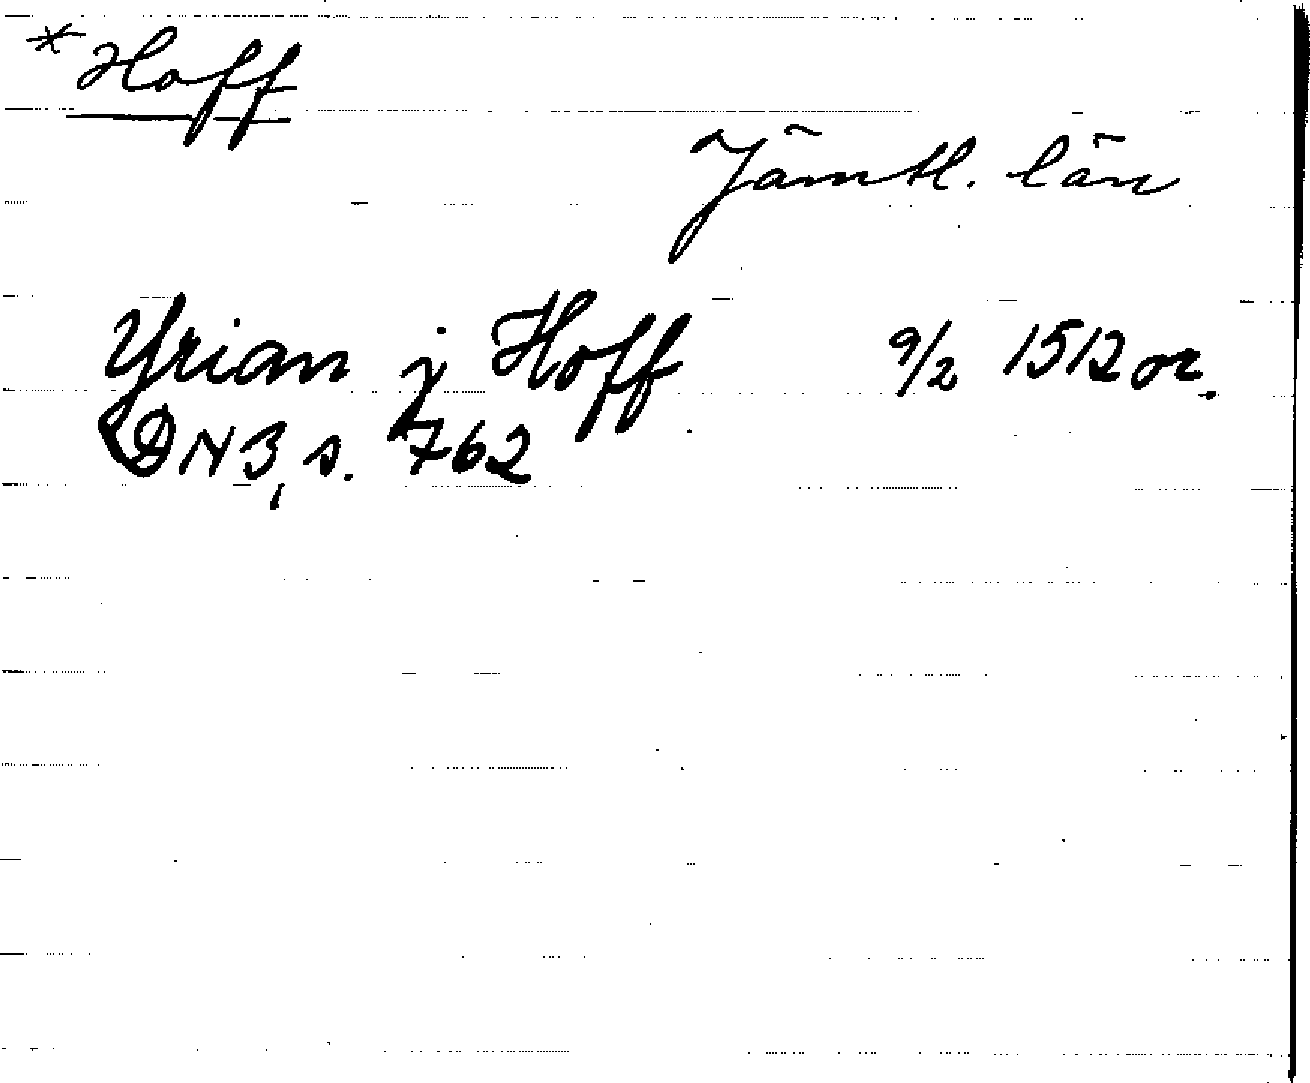 *Hoff
Jämtl. län
Yrian j Hoff 9/2 1512 or.
DN 3, s. 762